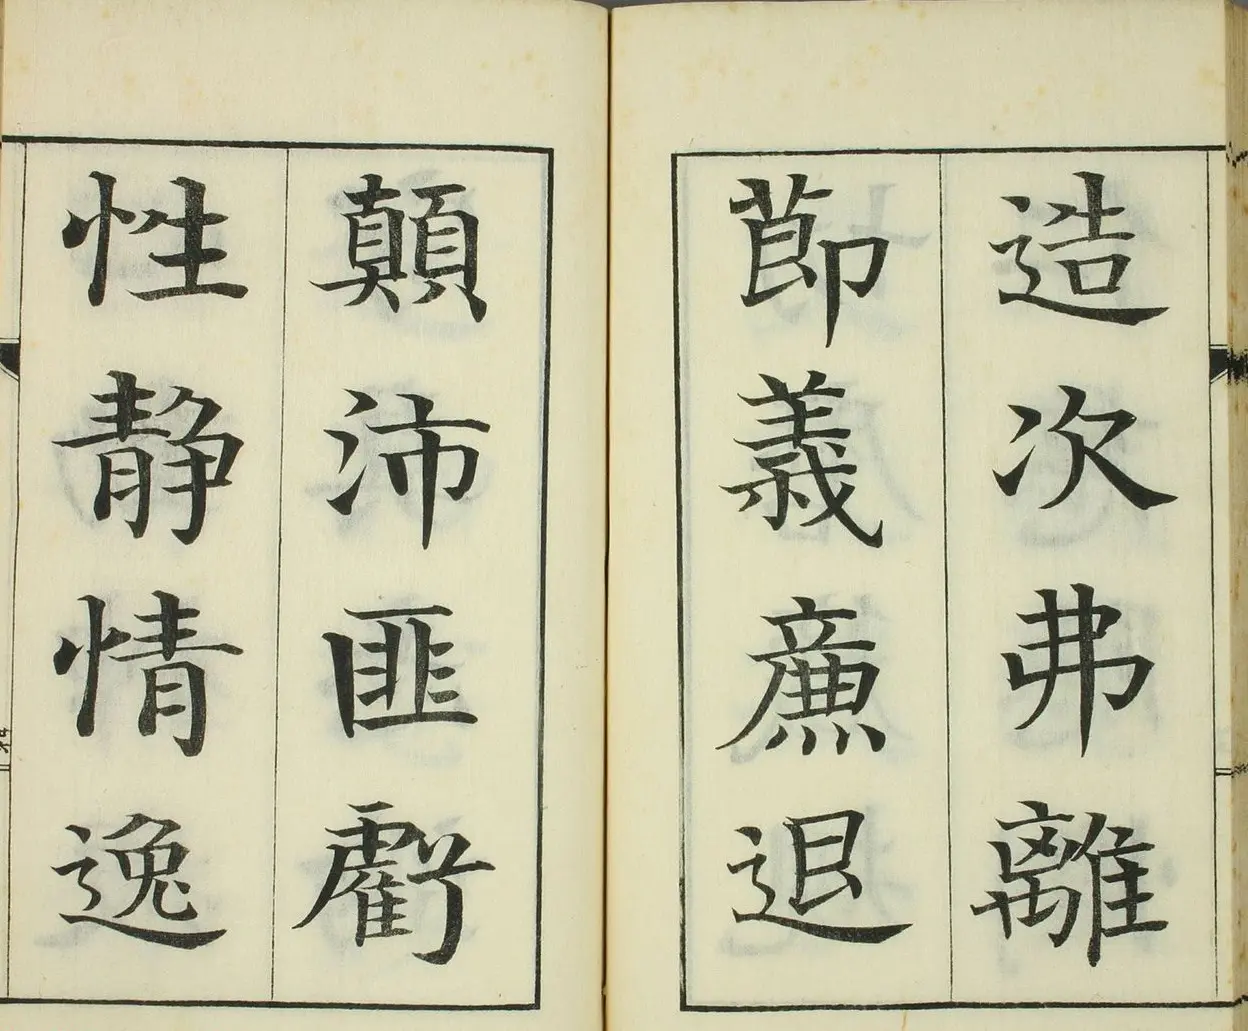 造次弗離
莭義亷退
顛沛匪虧
性静情逸